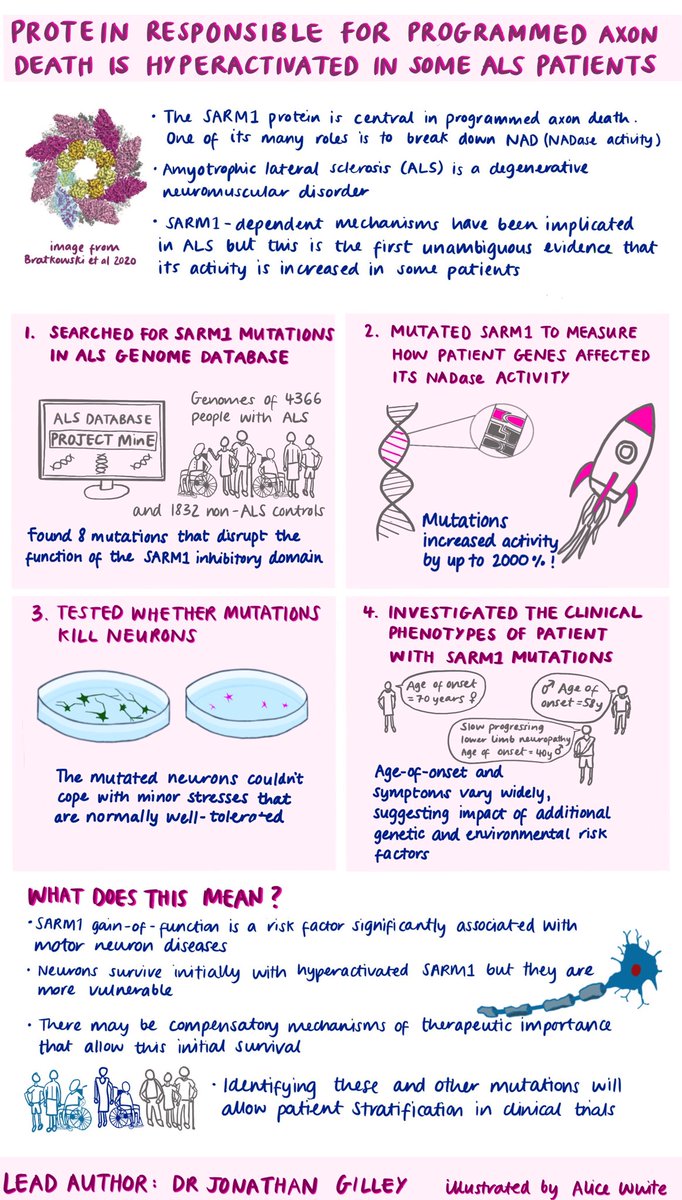 PROTEIN RESPONSIBLE FOR PROGRAMMED AXON
DEATH IS HYPERACTIVATED IN SOME ALS PATIENTS
• The SARM1 protein is central in programmed axon death.
One of its many roles is to break down NAD (NADase activity)
• Amyotrophic lateral sclerosis (ALS) is a degenerative
neuromuscular disorder
• SARM1-dependent mechanisms have been implicated
in ALS but this is the first unambiguous evidence that
its activity is increased in some patients
image from
Bratkowski et al 2020
1. SEARCHED FOR SARM1 MUTATIONS
IN ALS GENOME DATABASE
ALS DATABASE
PROJECT MinE
Genomes of 4366
people with ALS
and 1832 non-ALS controls
Found 8 mutations that disrupt the
function of the SARM1 inhibitory domain
2. MUTATED SARM1 TO MEASURE
HOW PATIENT GENES AFFECTED
ITS NADase ACTIVITY
Mutations
increased activity
by up to 2000%!
3. TESTED WHETHER MUTATIONS
KILL NEURONS
The mutated neurons couldn't
cope with minor stresses that
are normally well-tolerated
4. INVESTIGATED THE CLINICAL
PHENOTYPES OF PATIENT
WITH SARM1 MUTATIONS
Age of onset
=70 years ♀
♂ Age of
onset=58y
Slow progressing
lower limb neuropathy
Age of onset=40y ♂
Age-of-onset and
symptoms vary widely,
suggesting impact of additional
genetic and environmental risk
factors
WHAT DOES THIS MEAN?
• SARM1 gain-of-function is a risk factor significantly associated with
motor neuron diseases
• Neurons survive initially with hyperactivated SARM1 but they are
more vulnerable
• There may be compensatory mechanisms of therapeutic importance
that allow this initial survival
• Identifying these and other mutations will
allow patient stratification in clinical trials
LEAD AUTHOR: DR JONATHAN GILLEY illustrated by Alice White